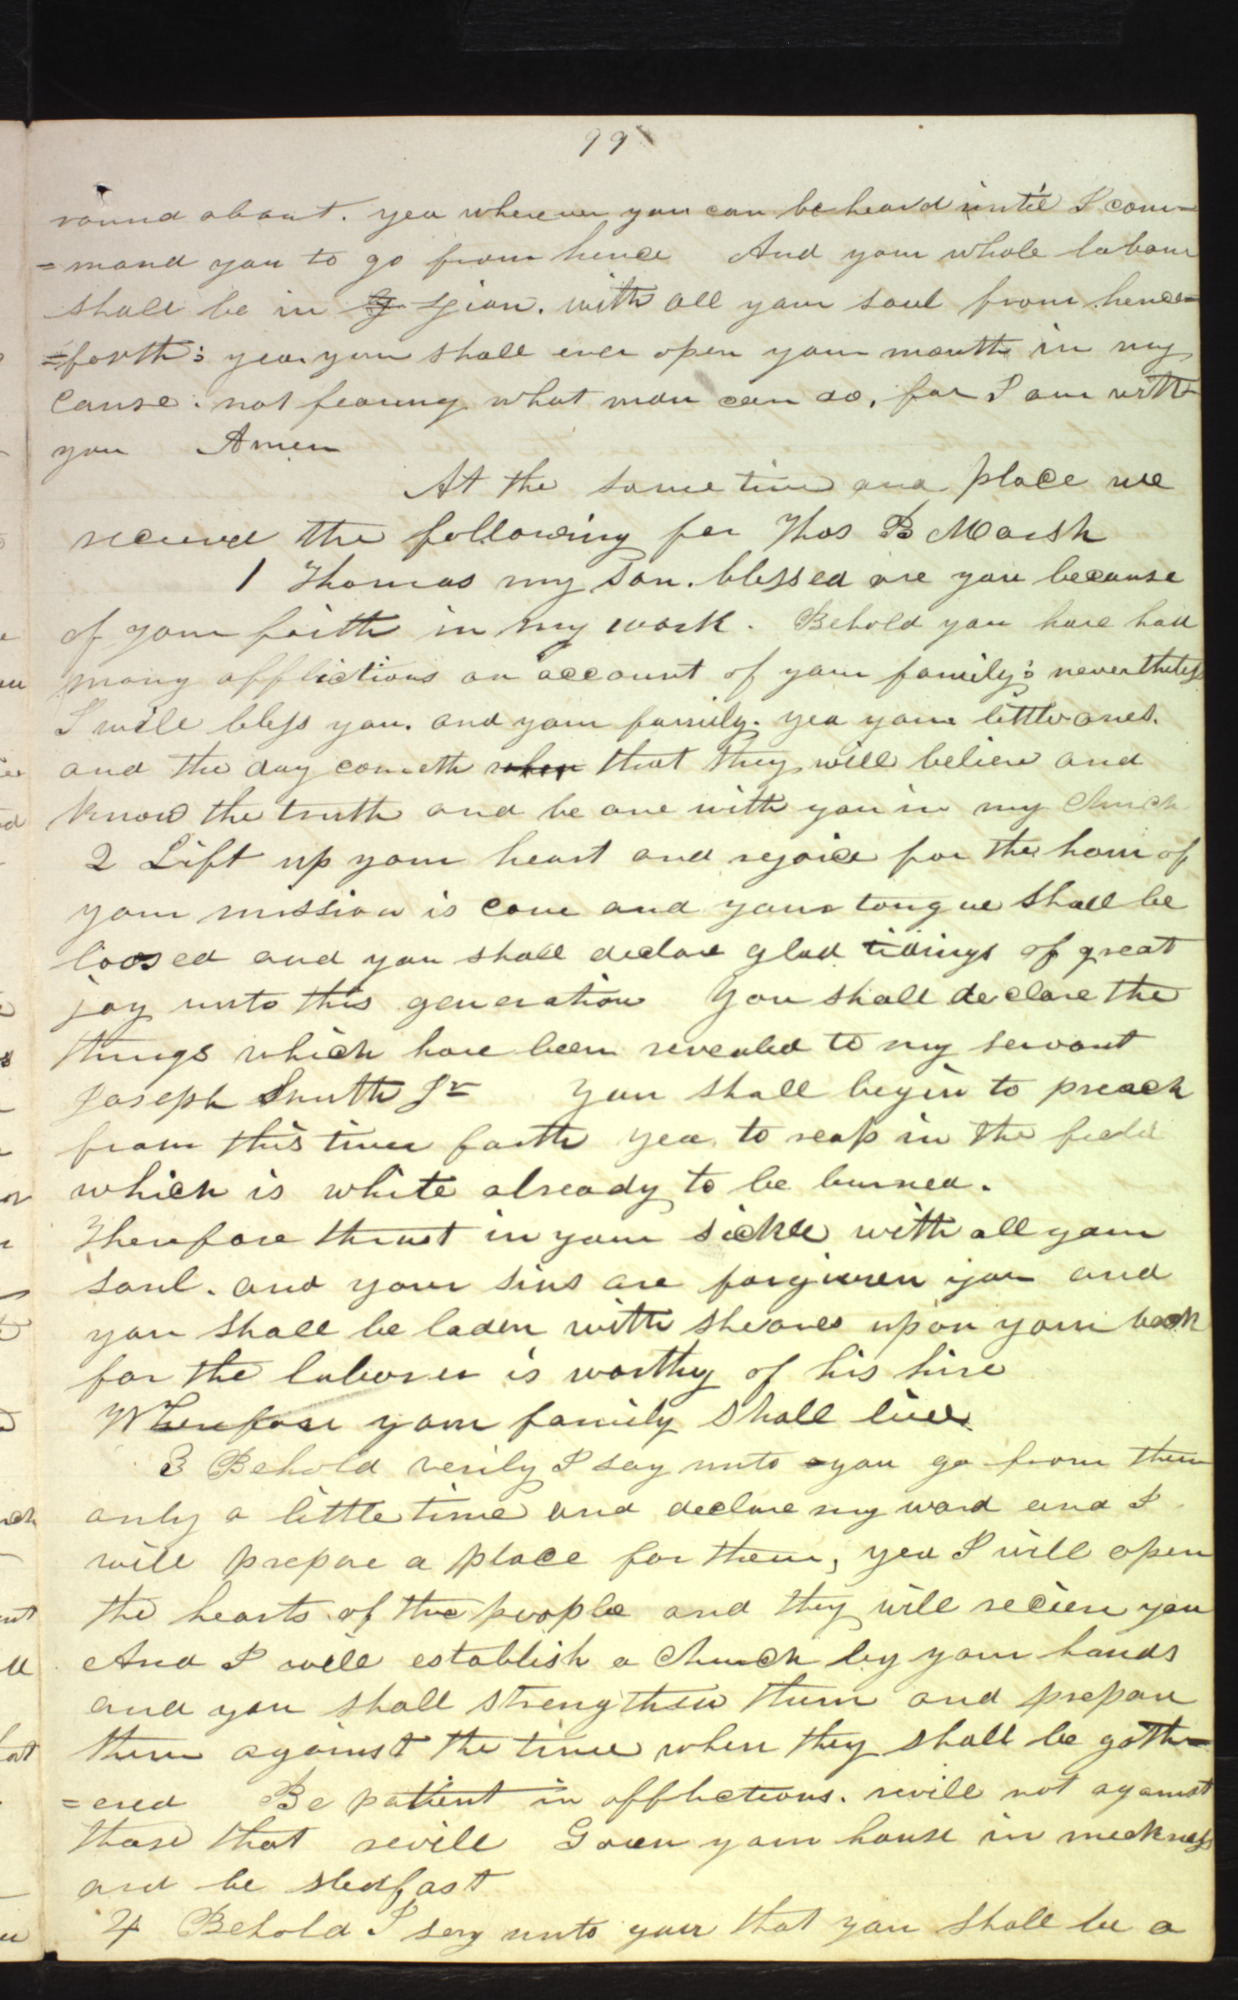 99
round about. yea wherever you can be heard until I com=
=mand you to go from hence And your whole labour
shall be in Zion. with all your soul from hence=
=forth: yea. you shall ever open your mouth in my
cause. not fearing what man can do, for I am with
you Amen
At the same time and place we
received the following for Thos B Marsh
1 Thomas my son. blessed are you because
of your faith in my work. Behold you have had
many afflictions on account of your family: nevertheless
I will bless you. and your family. yea your little ones.
and the day cometh when that they will believe and
know the truth and be one with you in my church
2 Lift up your heart and rejoice for the hour of
your mission is come and your tongue shall be
loosed and you shall declare glad tidings of great
joy unto this generation You shall declare the
things which have been revealed to my servant
Joseph Smith Jr You shall begin to preach
from this time forth yea, to reap in the field
which is white already to be burned.
Therefore thrust in your sickle with all your
soul. and your sins are forgiven you and
you shall be laden with sheaves upon your back
for the laborer is worthy of his hire
Wherefore your family shall live
3 Behold verily I say unto you go from them
only a little time and declare my word and I
will prepare a place for them, yea I will open
the hearts of the people and they will recieve you
And I will establish a church by your hands
and you shall strengthen them and prepare
them against the time when they shall be gath=
=ered Be patient in afflictions. revile not against
those that revile Govern your house in meekness
and be stedfast
4 Behold I say unto you that you shall be a